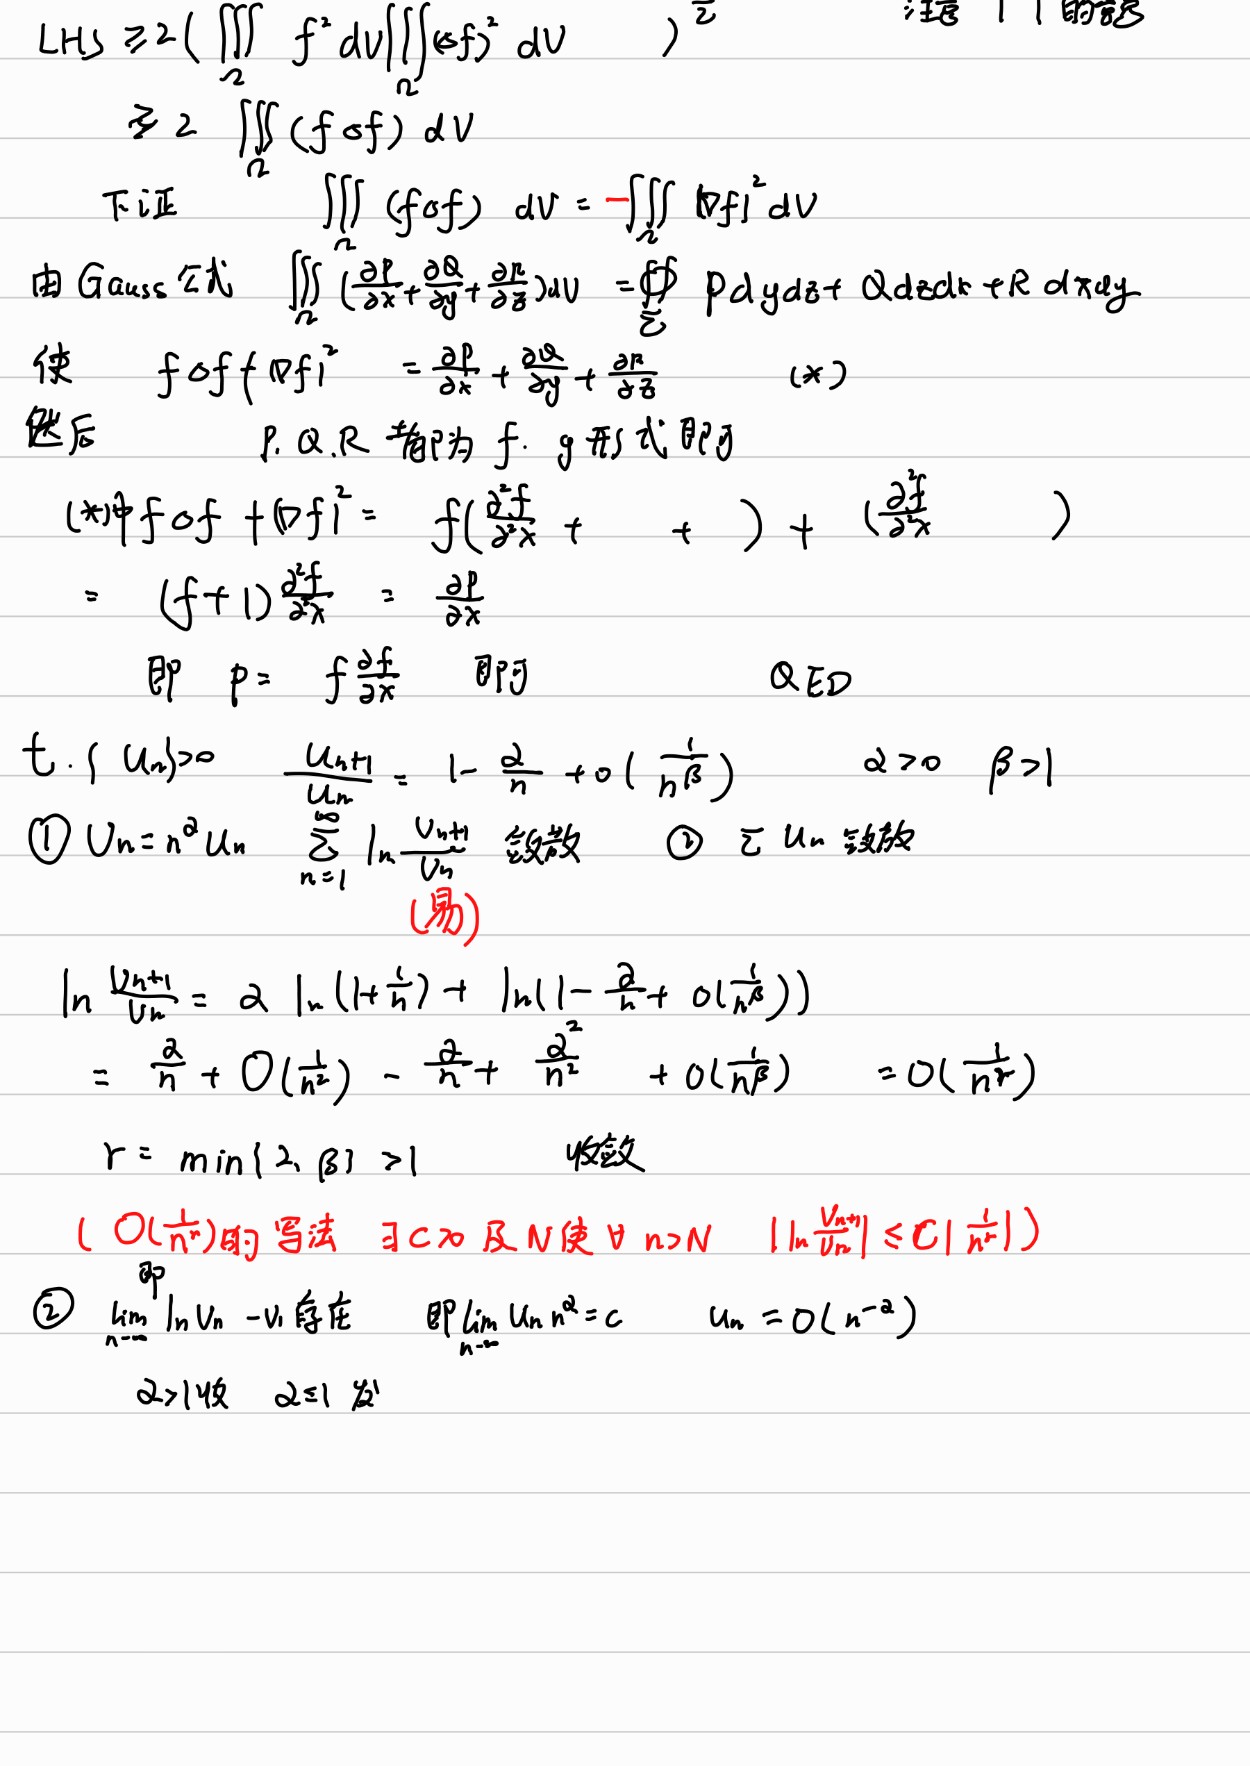 注意 | | 的
LHS ≥ 2(∭_Ω f² dV ∭_Ω (△f)² dV )^½
≥ 2 ∭_Ω (f△f) dV
下证 ∭_Ω (f△f) dV = -∭_Ω |∇f|² dV
由Gauss公式 ∭_Ω (∂P/∂x + ∂Q/∂y + ∂R/∂z)dV = ∯_Σ Pdydz + Qdzdx + R dxdy
使 f△f + |∇f|² = ∂P/∂x + ∂Q/∂y + ∂R/∂z (*)
然后 P.Q.R 都为 f·g形式即可
(*)中f△f + |∇f|² = f(∂²f/∂²x + + ) + (∂²f/∂²x )
= (f+1)∂²f/∂²x = ∂P/∂x
即 P = f ∂f/∂x 即可 QED
t. {Un}>0 Un+1/Un = 1 - α/n + o(1/n^β) α>0 β>1
① Vn = n^α Un ∑_{n=1}^∞ ln Vn+1/Vn 敛散 ② ∑ Un 敛散
(易)
ln Vn+1/Vn = α ln(1+1/n) + ln(1 - α/n + o(1/n^β))
= α/n + O(1/n²) - α/n + α²/n² + o(1/n^β) = O(1/n^r)
r = min{2, β} >1 收敛
( O(1/n^r)的写法 ∃C>0 及N使∀n>N |ln Vn+1/Vn| ≤ C|1/n^r| )
② 即 lim_{n→∞} ln Vn - V1 存在 即 lim_{n→∞} Un n^α = c Un = O(n^-α)
α>1收 α≤1 发